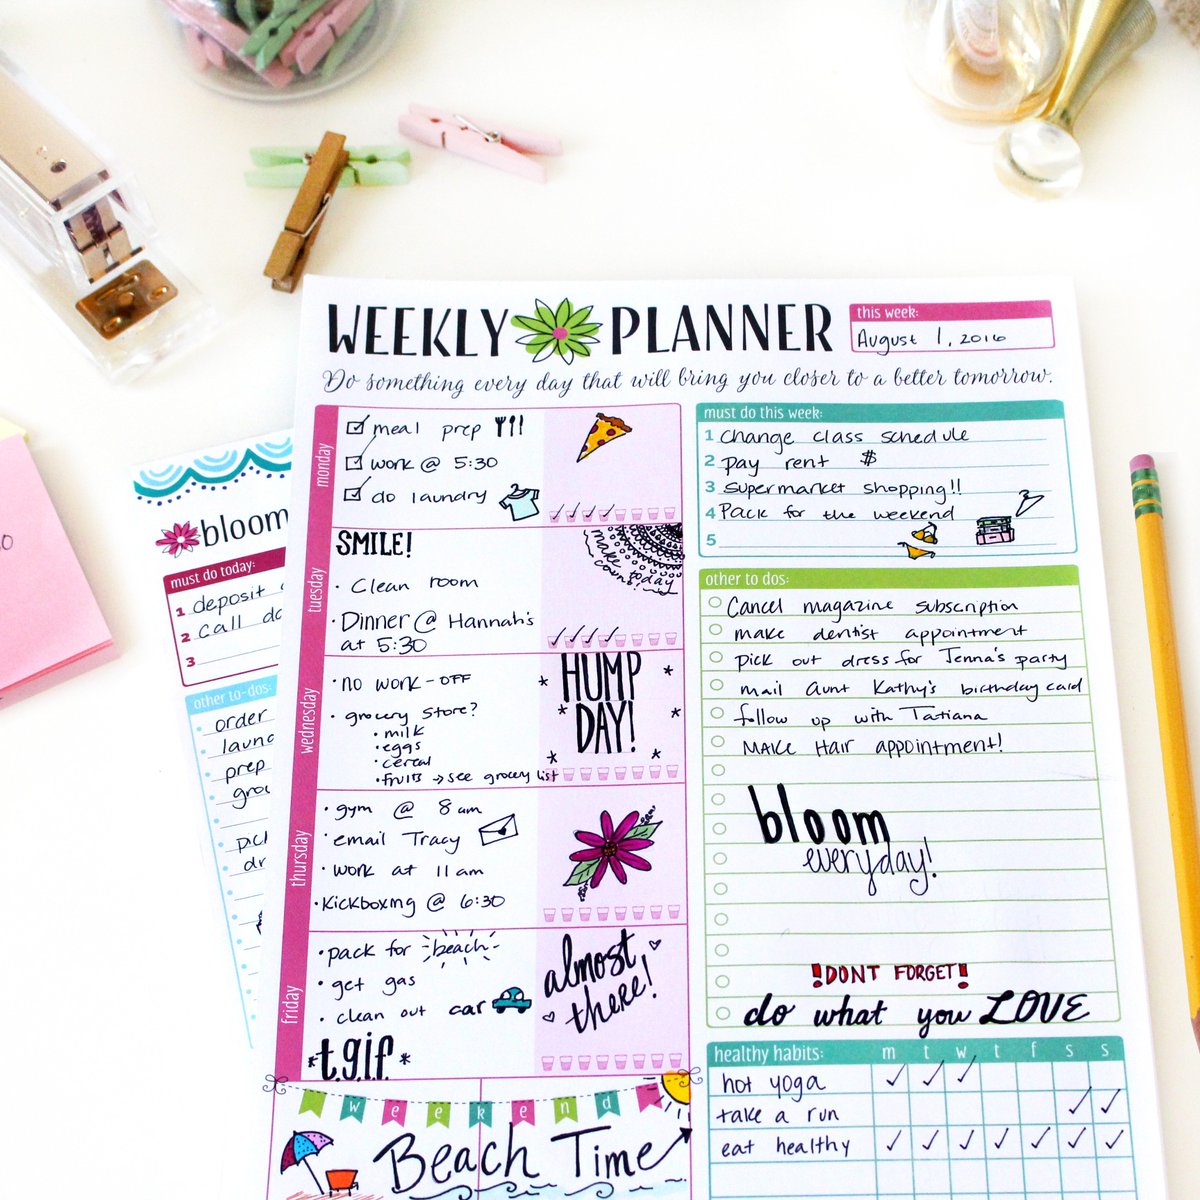 WEEKLY PLANNER
this week:
August 1, 2016
Do something every day that will bring you closer to a better tomorrow.
monday
meal prep
work @ 5:30
do laundry
tuesday
SMILE!
• Clean room
• Dinner @ Hannah's
at 5:30
make today
count!
wednesday
• no work - OFF
• grocery store?
• milk
• eggs
• cereal
• fruits → see grocery list
HUMP
DAY!
thursday
• gym @ 8 am
• email Tracy
• work at 11 am
• Kickboxing @ 6:30
friday
• pack for beach
• get gas
• clean out car
*t.g.i.f*
almost
there!
weekend
Beach Time
must do this week:
1 change class schedule
2 pay rent $
3 supermarket shopping!!
4 Pack for the weekend
5
other to dos:
Cancel magazine subscription
make dentist appointment
pick out dress for Jenna's party
mail Aunt Kathy's birthday card
follow up with Tatiana
MAKE Hair appointment!
bloom
everyday!
!DONT FORGET!
do what you LOVE
healthy habits: m t w t f s s
hot yoga
take a run
eat healthy
bloom
must do today:
1 deposit
2 call
3
other to-dos:
order
prep